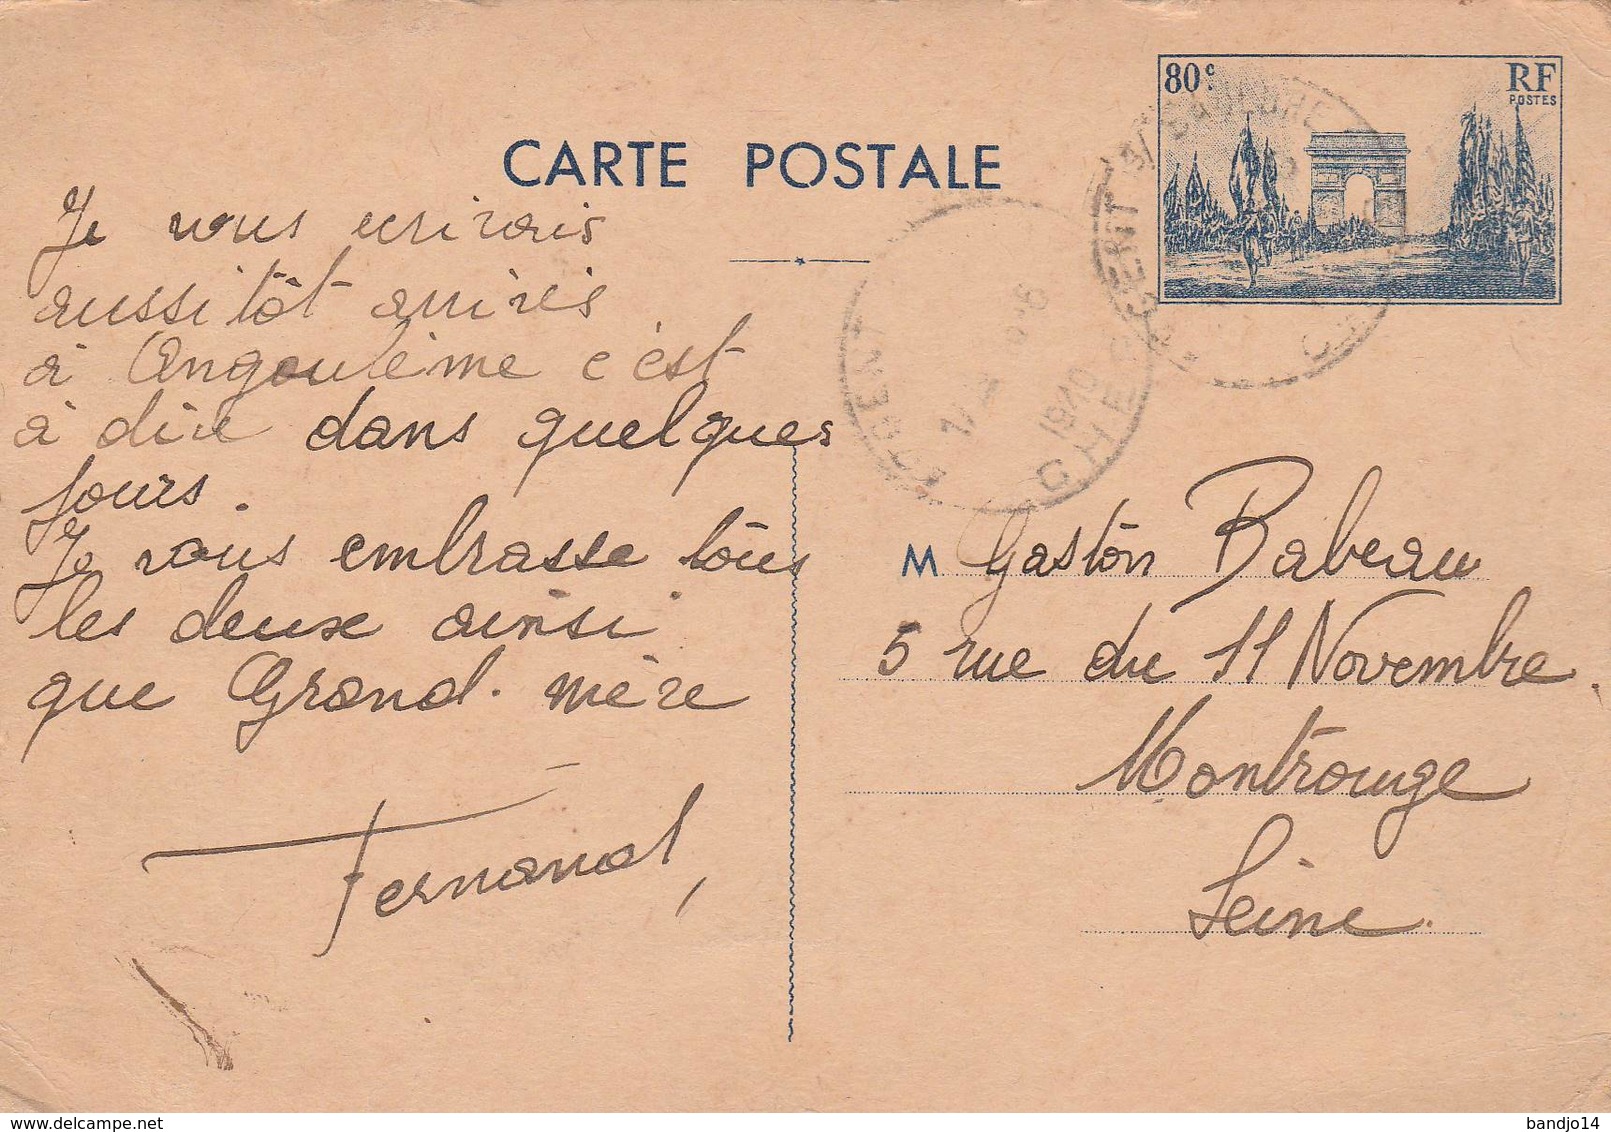 80c
RF
POSTES
CARTE POSTALE
Je vous ecrirais
aussitôt arrivés
à Angoulême c'est
à dire dans quelques
jours.
Je vous embrasse tous
les deux ainsi
que Grand-mère
Fernand,
M Gaston Babeau
5 rue du 11 Novembre
Montrouge
Seine.
ARGENT S/ SAULDRE
CHER
ARGENT
1940
CHER
bandjo14